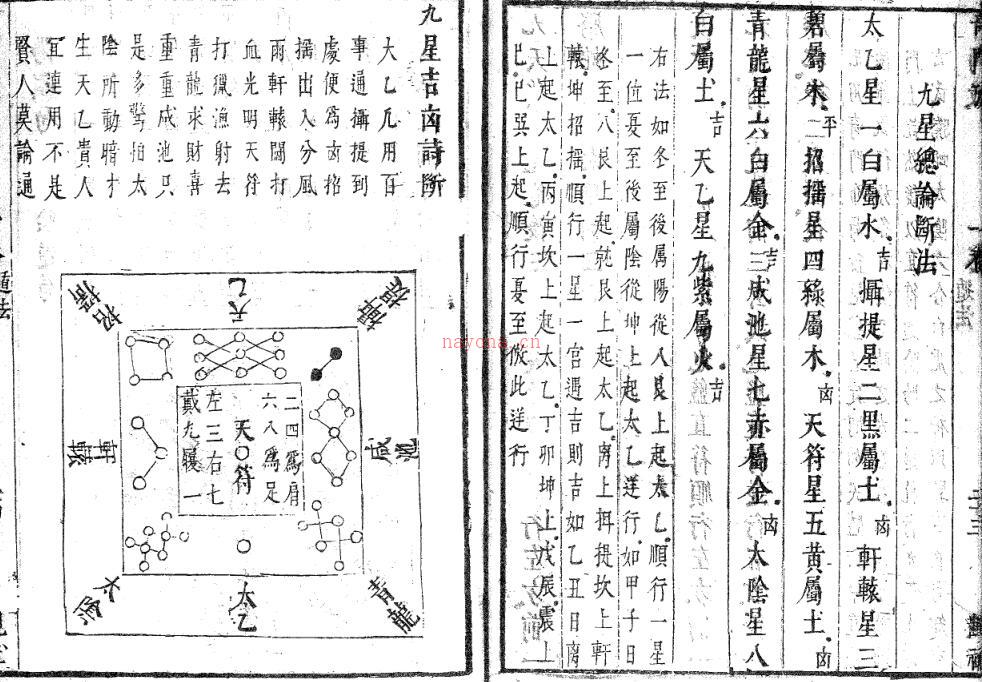 九星總論斷法
太乙星一白屬水吉 攝提星二黑屬土凶 軒轅星三
碧屬木平 招搖星四綠屬木凶 天符星五黃屬土凶
青龍星六白屬金吉 咸池星七赤屬金凶 太陰星八
白屬土吉 天乙星九紫屬火吉
右法如冬至後屬陽從八艮上起太乙順行一星
一位憂至後屬陰從坤上起太乙逆行如甲子日
冬至八艮上起就艮上起太乙离上挕提坎上軒
轅坤招搖順行一星一宮遇吉則吉如乙丑日离
上起太乙丙寅坎上起太乙丁卯坤上戊辰震上
巳巳巽上起順行憂至倣此逆行
九星吉凶詩断
太乙凢用百
事通攝提到
處便為凶招
搖出入分風
雨軒轅鬪打
血光明天符
打獵漁射去
青龍求財喜
重重成池只
是多驚怕太
陰所動暗才
生天乙貴人
宜連用不是
賢人莫論通
天乙
攝提
咸池
青龍
太乙
太陰
軒轅
招搖
二四為肩
六八為足
天符
左三右七
戴九履一
遁法
nayona.cn